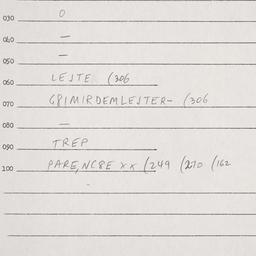 030 0
040 —
050 —
060 LESTE (306
070 G81MIRDEMLESTER- (306
080 —
090 TREP
100 PARE,NC8E xx (249 (270 (162